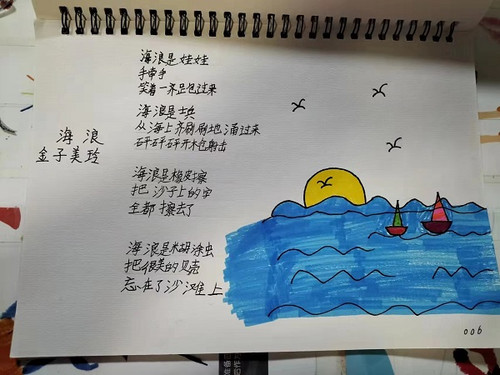 海浪
金子美玲
海浪是娃娃
手牵手
笑着一齐跑过来
海浪是士兵
从海上齐刷刷地涌过来
砰砰砰开枪射击
海浪是橡皮擦
把沙子上的字
全都擦去了
海浪是糊涂虫
把很美的贝壳
忘在了沙滩上
006